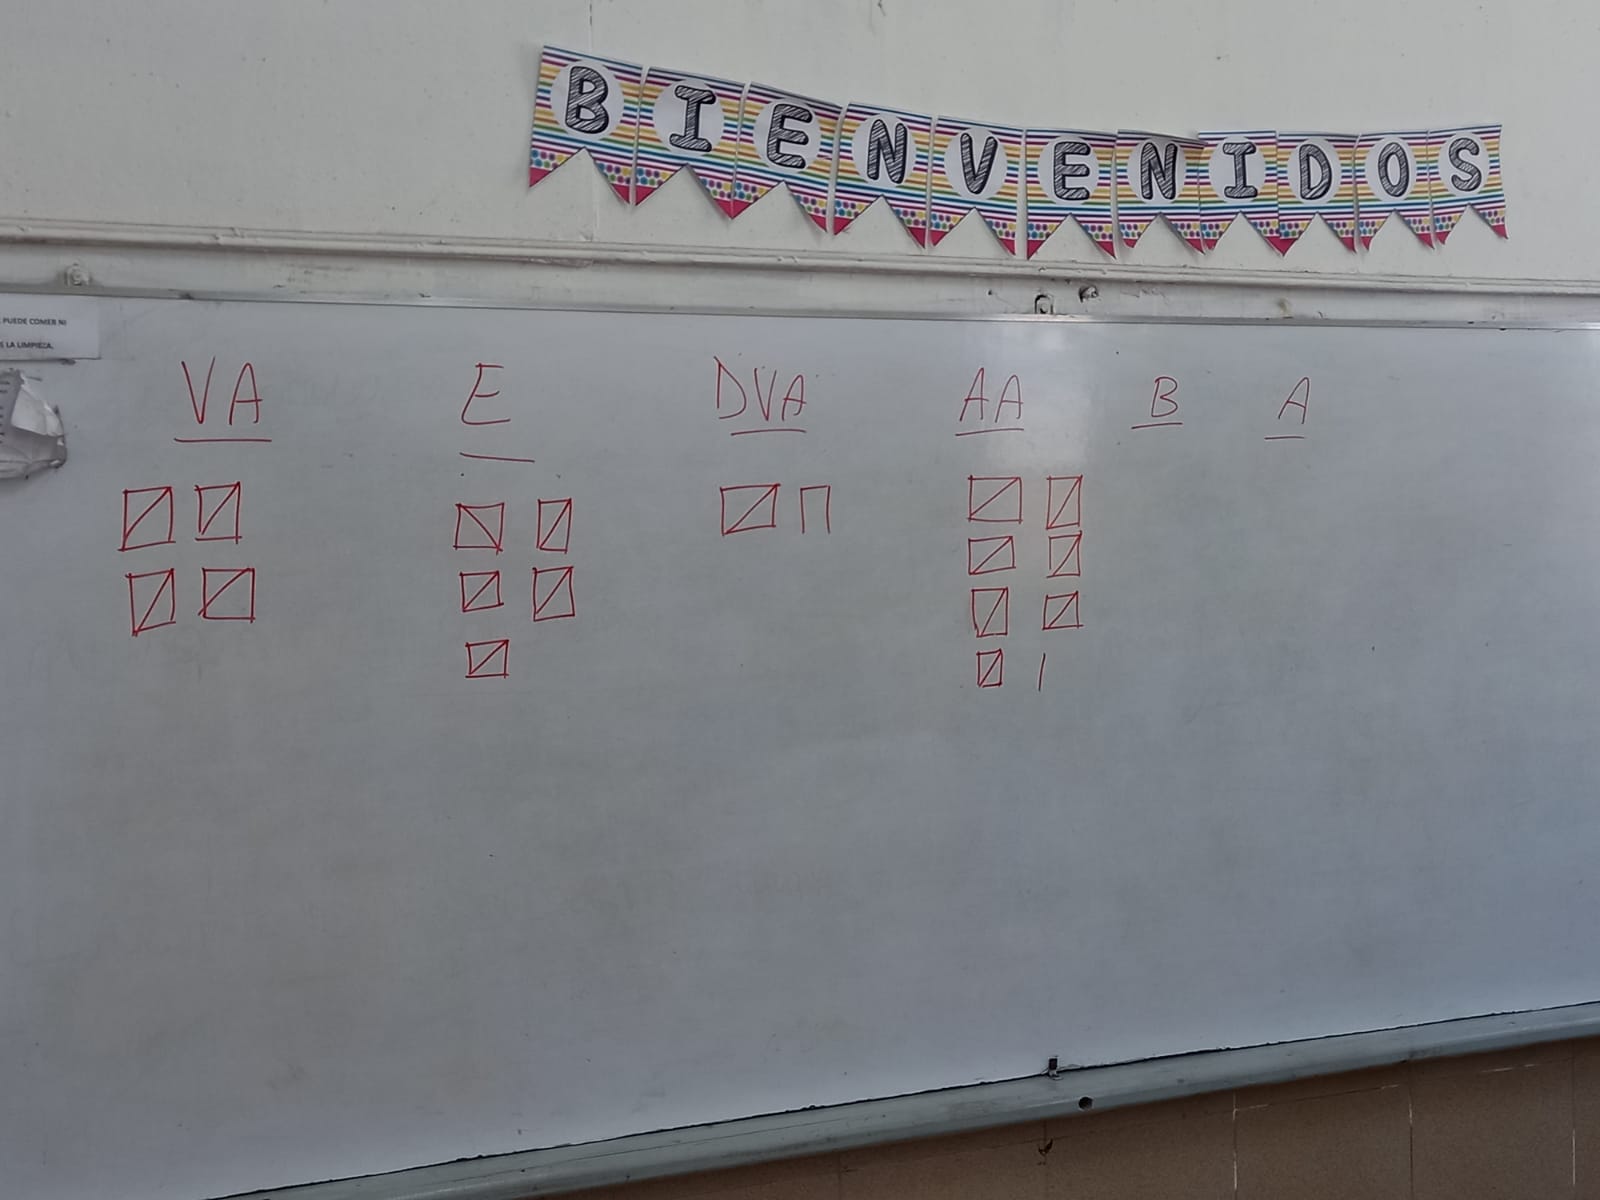 BIENVENIDOS
PUEDE COMER NI
LA LIMPIEZA.
VA E DVA AA B A